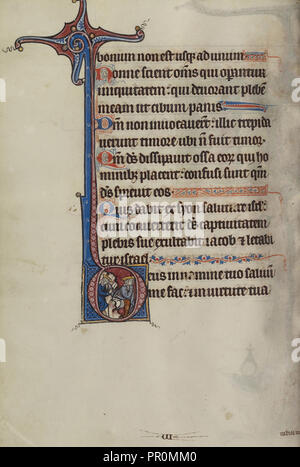 bonum non est usq ad unum
Nonne scient oms qui operantur
iniquitatem: qui devorant plebe
meam ut cibum panis
Dm non invocaverut: illic trepida
verunt timore ubi n fuit timor
Qm ds dissipavit ossa eor qui ho
minibz placent: confusi sunt qm
ds sprevit eos
Quis dabit ex syon salutare isrl:
cum converterit ds captivitatem
plebis sue exultabit iacob et letabi
tur israel
Deus in nomine tuo salvum
me fac: et in virtute tua
alamy
PR0MM0